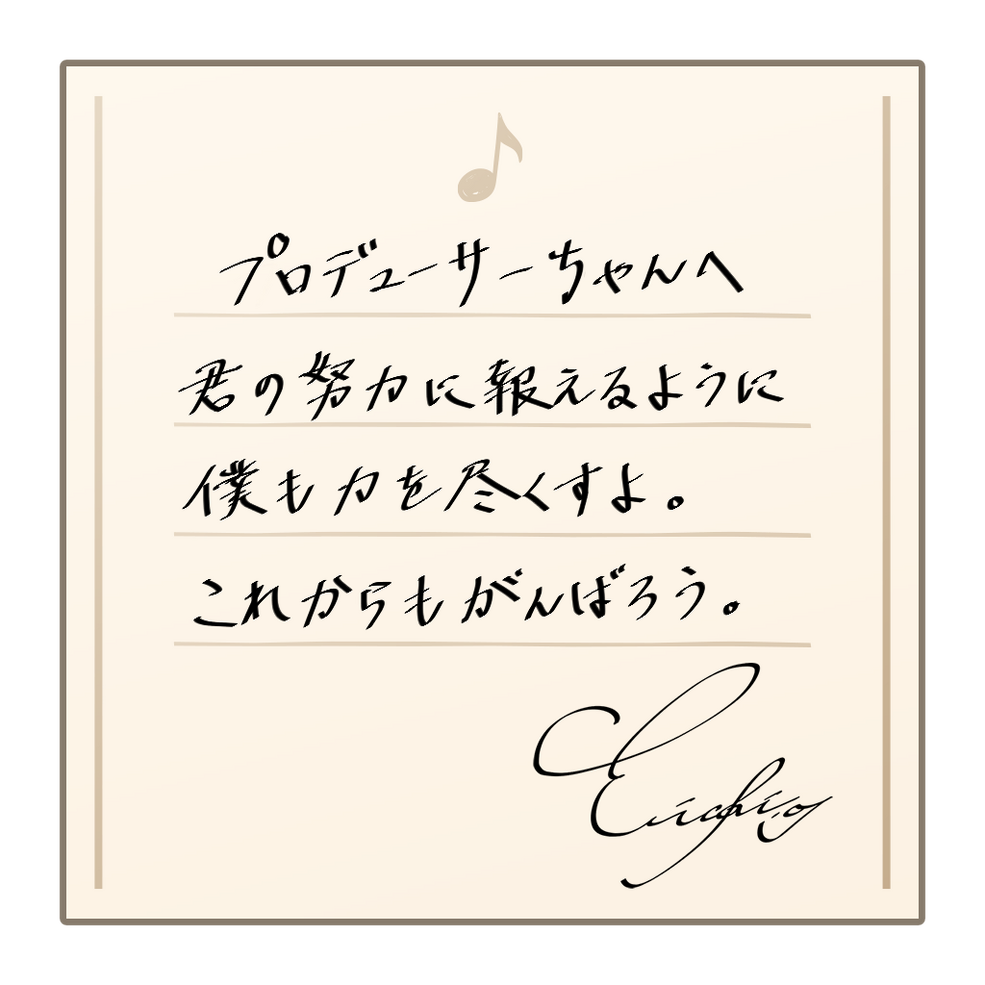 プロデューサーちゃんへ
君の努力に報えるように
僕も力を尽くすよ。
これからもがんばろう。
Eiichi